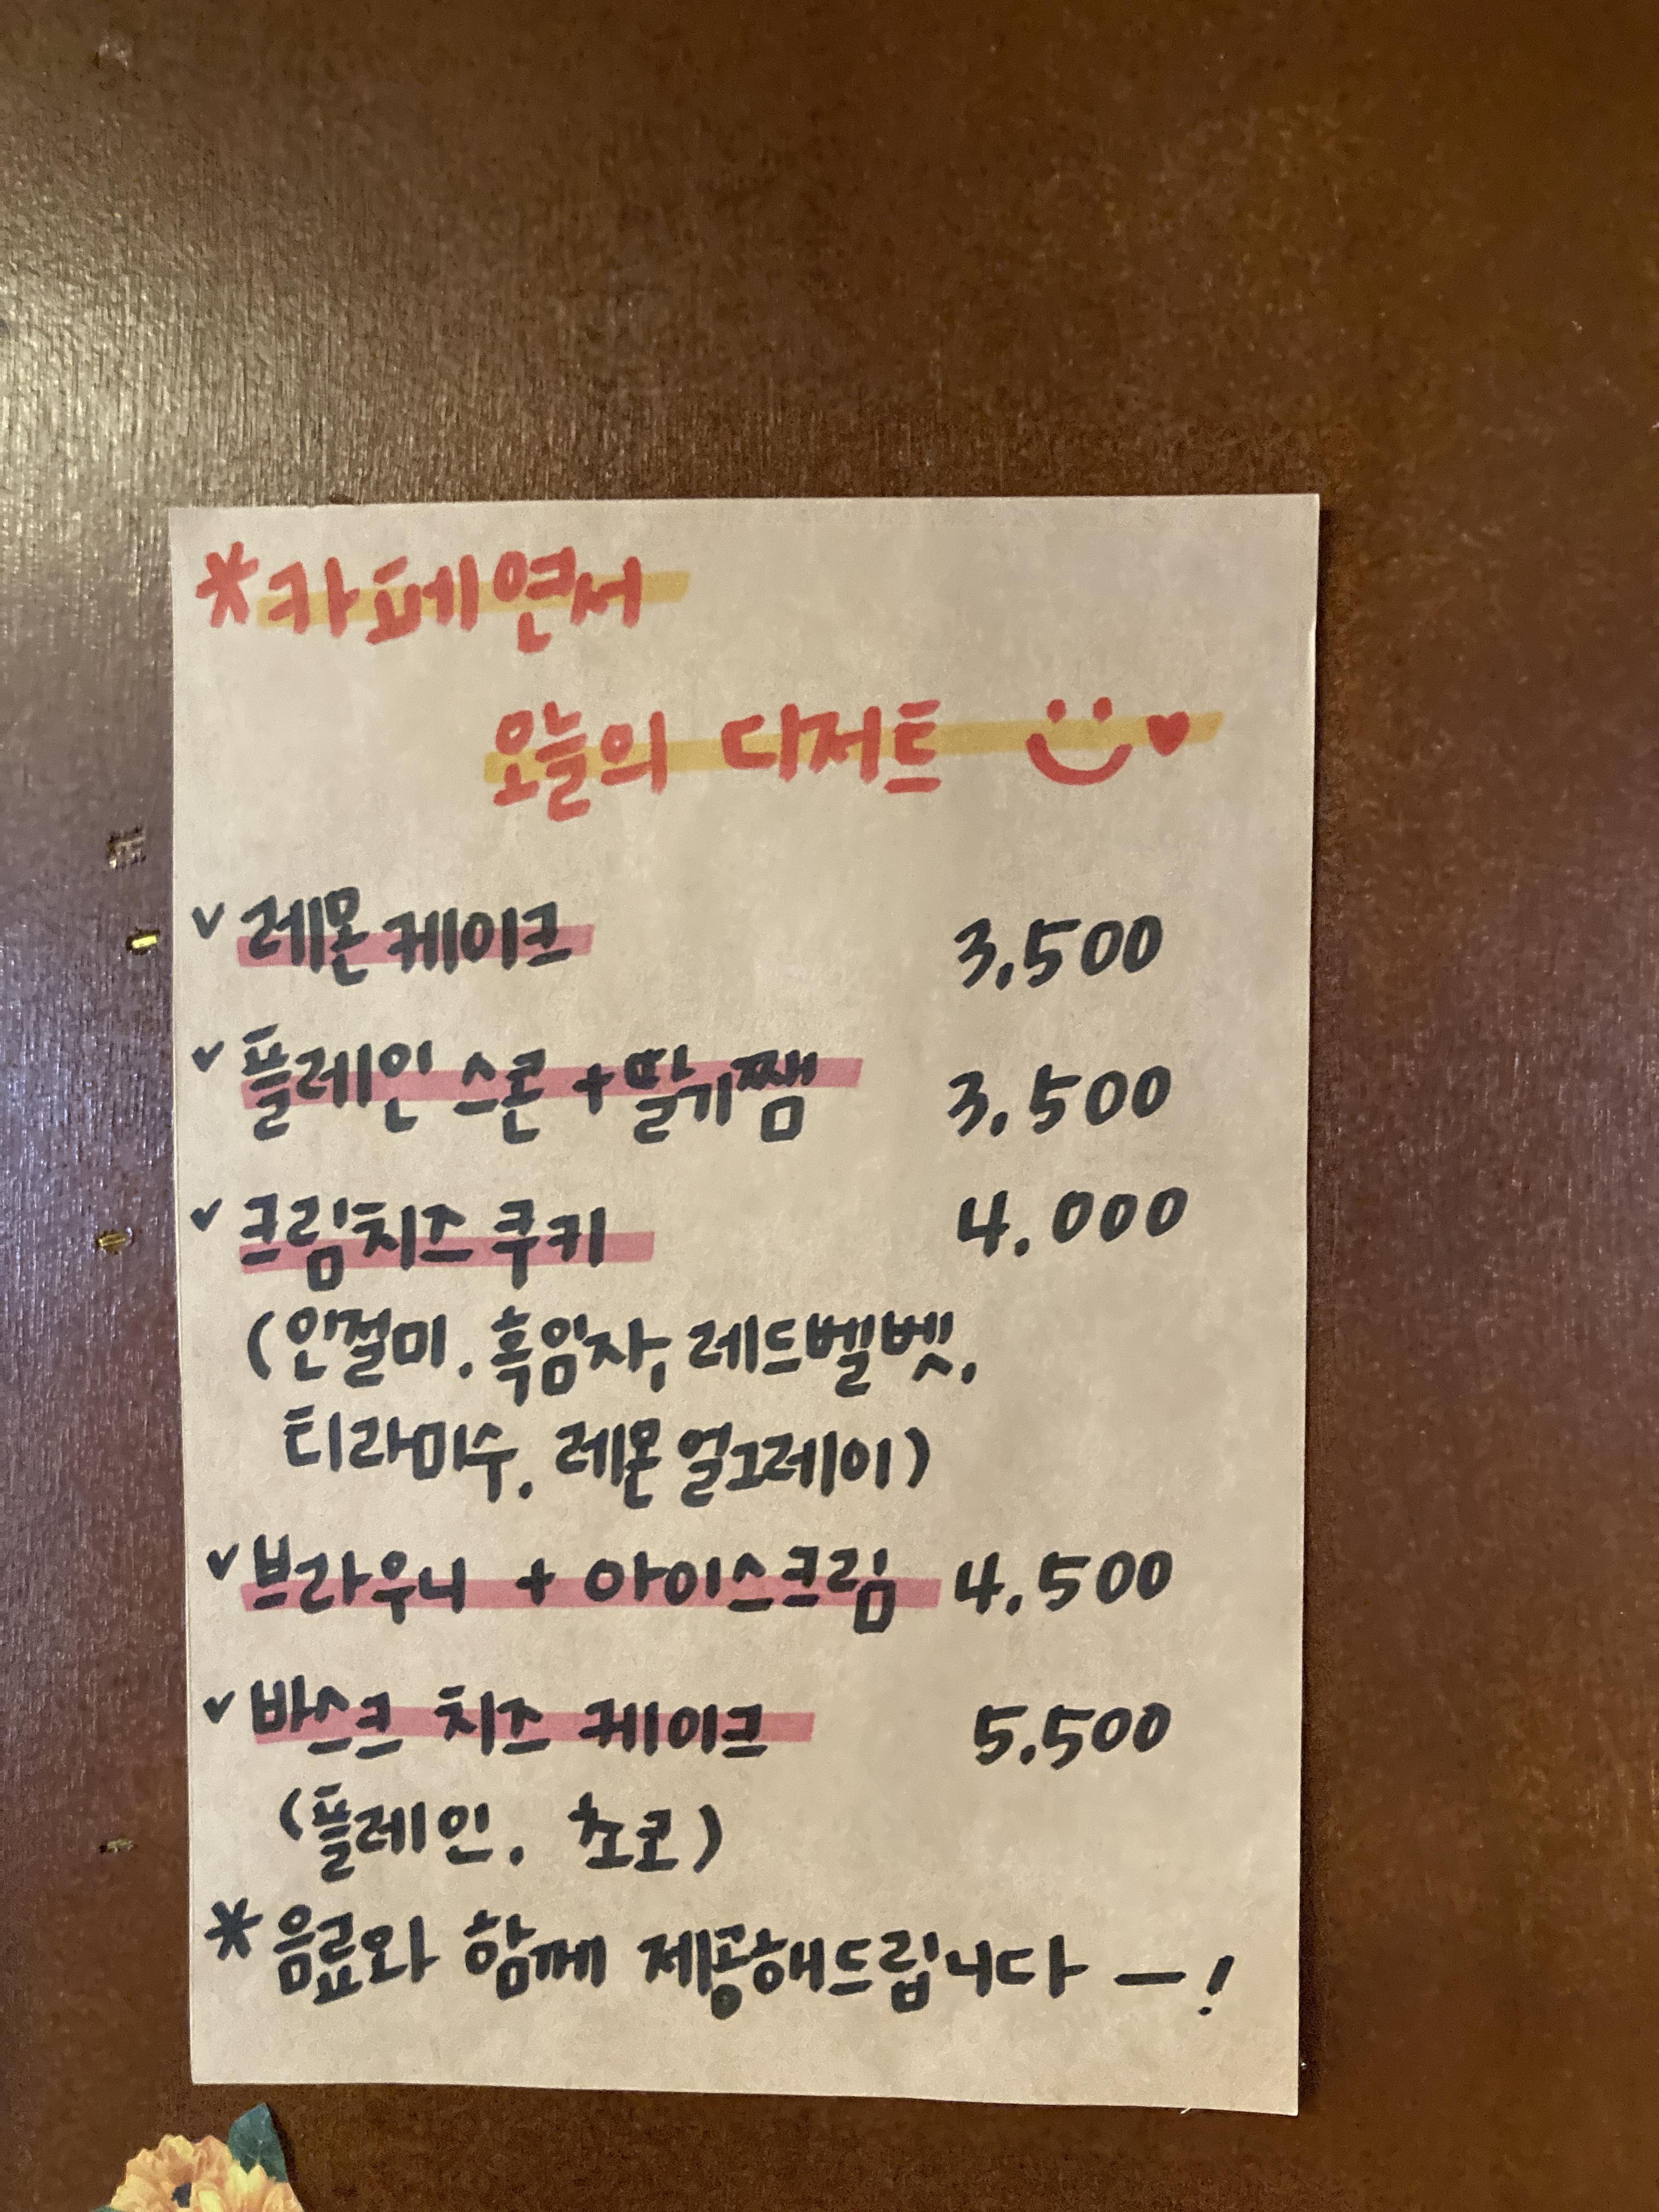 *카페연서
오늘의 디저트
✓레몬케이크 3,500
✓플레인 스콘+딸기쨈 3,500
✓크림치즈 쿠키 4,000
(인절미, 흑임자, 레드벨벳,
티라미수, 레몬얼그레이)
✓브라우니 + 아이스크림 4,500
✓바스크 치즈 케이크 5,500
(플레인, 초코)
*음료와 함께 제공해드립니다 —!